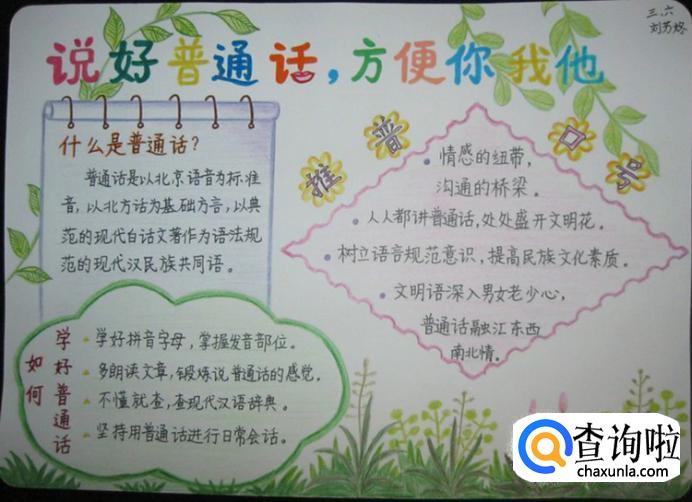 三.六
刘芳烙
说好普通话，方便你我他
什么是普通话？
普通话是以北京语音为标准
音，以北方话为基础方言，以典
范的现代白话文著作为语法规
范的现代汉民族共同语。
推普口号
情感的纽带，
沟通的桥梁。
人人都讲普通话，处处盛开文明花。
树立语音规范意识，提高民族文化素质。
文明语深入男女老少心，
普通话融汇东西
南北情。
如何
学好普通话
学好拼音字母，掌握发音部位。
多朗读文章，锻炼说普通话的感觉。
不懂就查，查现代汉语辞典。
坚持用普通话进行日常会话。
查询啦
chaxunla.com